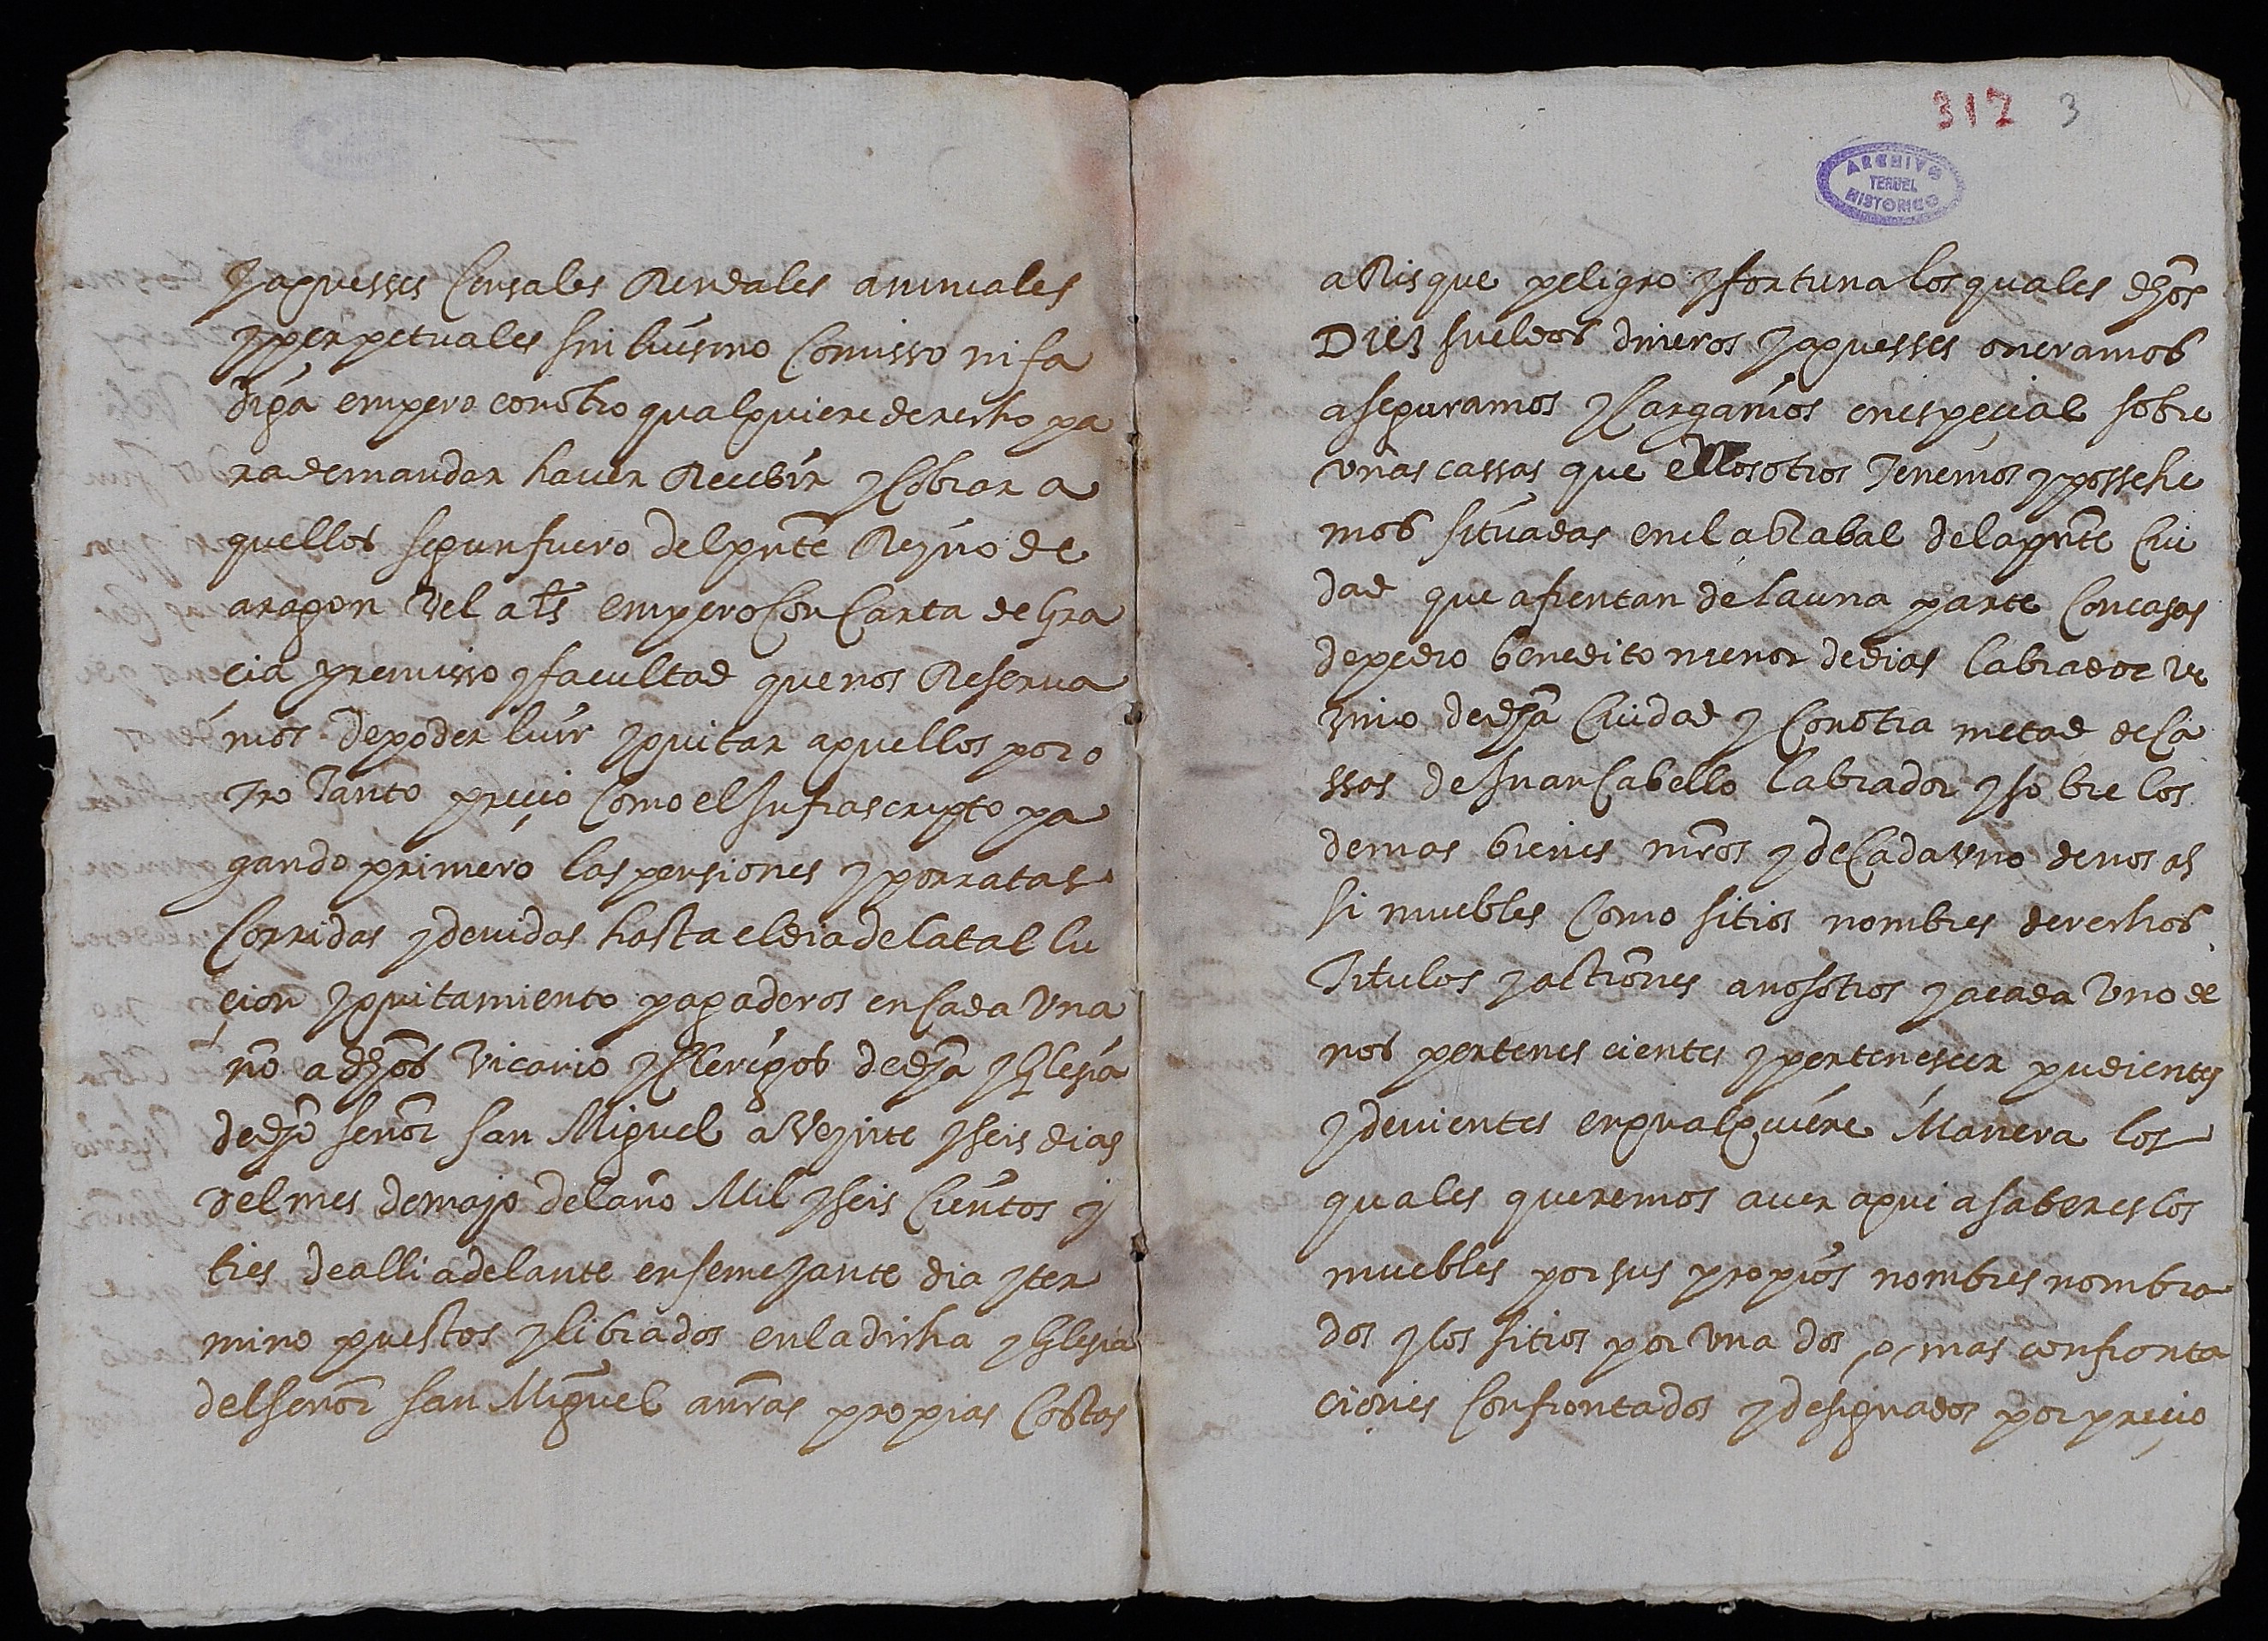 Jaquesses Censales Rendales annuales
y perpetuales sin luismo Comisso ni fa
diga empero con otro qualquiere derecho pa
ra demandar haver Recebir y Cobrar a
quellos segun fuero del pnte Reyno de
aragon vel als empero Con Carta de Gra
cia premisso y facultad que nos Reserua
mos de poder luir y quitar aquellos por o
tro tanto precio Como el Infrascripto pa
gando primero las pensiones y porratas
Corridas y deuidas hasta el dia de la tal lu
çion y quitamiento pagaderos en Cada Una
ño a dhos Vicario y Clerigos de dha yglesia
de dho señor san Miguel a Veynte y seis dias
del mes de mayo del año Mil y seis Cientos y
tres de alli adelante en semejante dia y ter
mino puestos y librados en la dicha yglesia
del señor san Miguel a nras propias Costas
312 3
ARCHIVO
TERUEL
HISTORICO
a Risque peligro y fortuna los quales dhos
Diez sueldos dineros Jaquesses oneramos
aseguramos y Cargamos en especial sobre
unas cassas que nosotros Tenemos y possehe
mos situadas en el aRabal de la pnte Ciu
dad que afrentan de la una parte Con casas
de pedro benedito menor de dias labrador ve
zino de dha Ciudad y Con otra metad de Ca
ssas de Juan Cabello labrador y sobre los
demas bienes nros y de Cada vno de nos as
si muebles Como sitios nombres derechos
Titulos y actiones a nosotros y a cada Uno de
nos pertenes cientes y pertenescer pudientes
y deuientes en qualquiere Manera los
quales queremos auer aqui a saber es los
muebles por sus propios nombres nombra
dos y los sitios por Una dos o mas confronta
ciones Confrontados y designados por precio